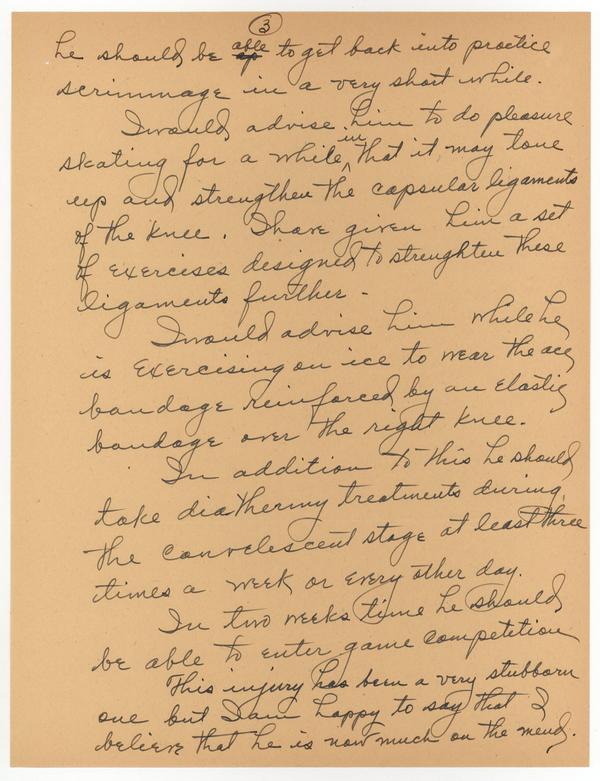 3
he should be able to get back into practice
scrimmage in a very short while.
I would advise him to do pleasure
skating for a while, in that it may tone
up and strengthen the capsular ligaments
of the knee. I have given him a set
of exercises designed to strenghten these
ligaments further -
I would advise him while he
is exercising on ice to wear the ace
bandage reinforced by an elastic
bandage over the right knee.
In addition to this he should
take diathermy treatments during
the convelescent stage at least three
times a week or every other day.
In two weeks time he should
be able to enter game competition
This injury has been a very stubborn
one but I am happy to say that I
believe that he is now much on the mend.